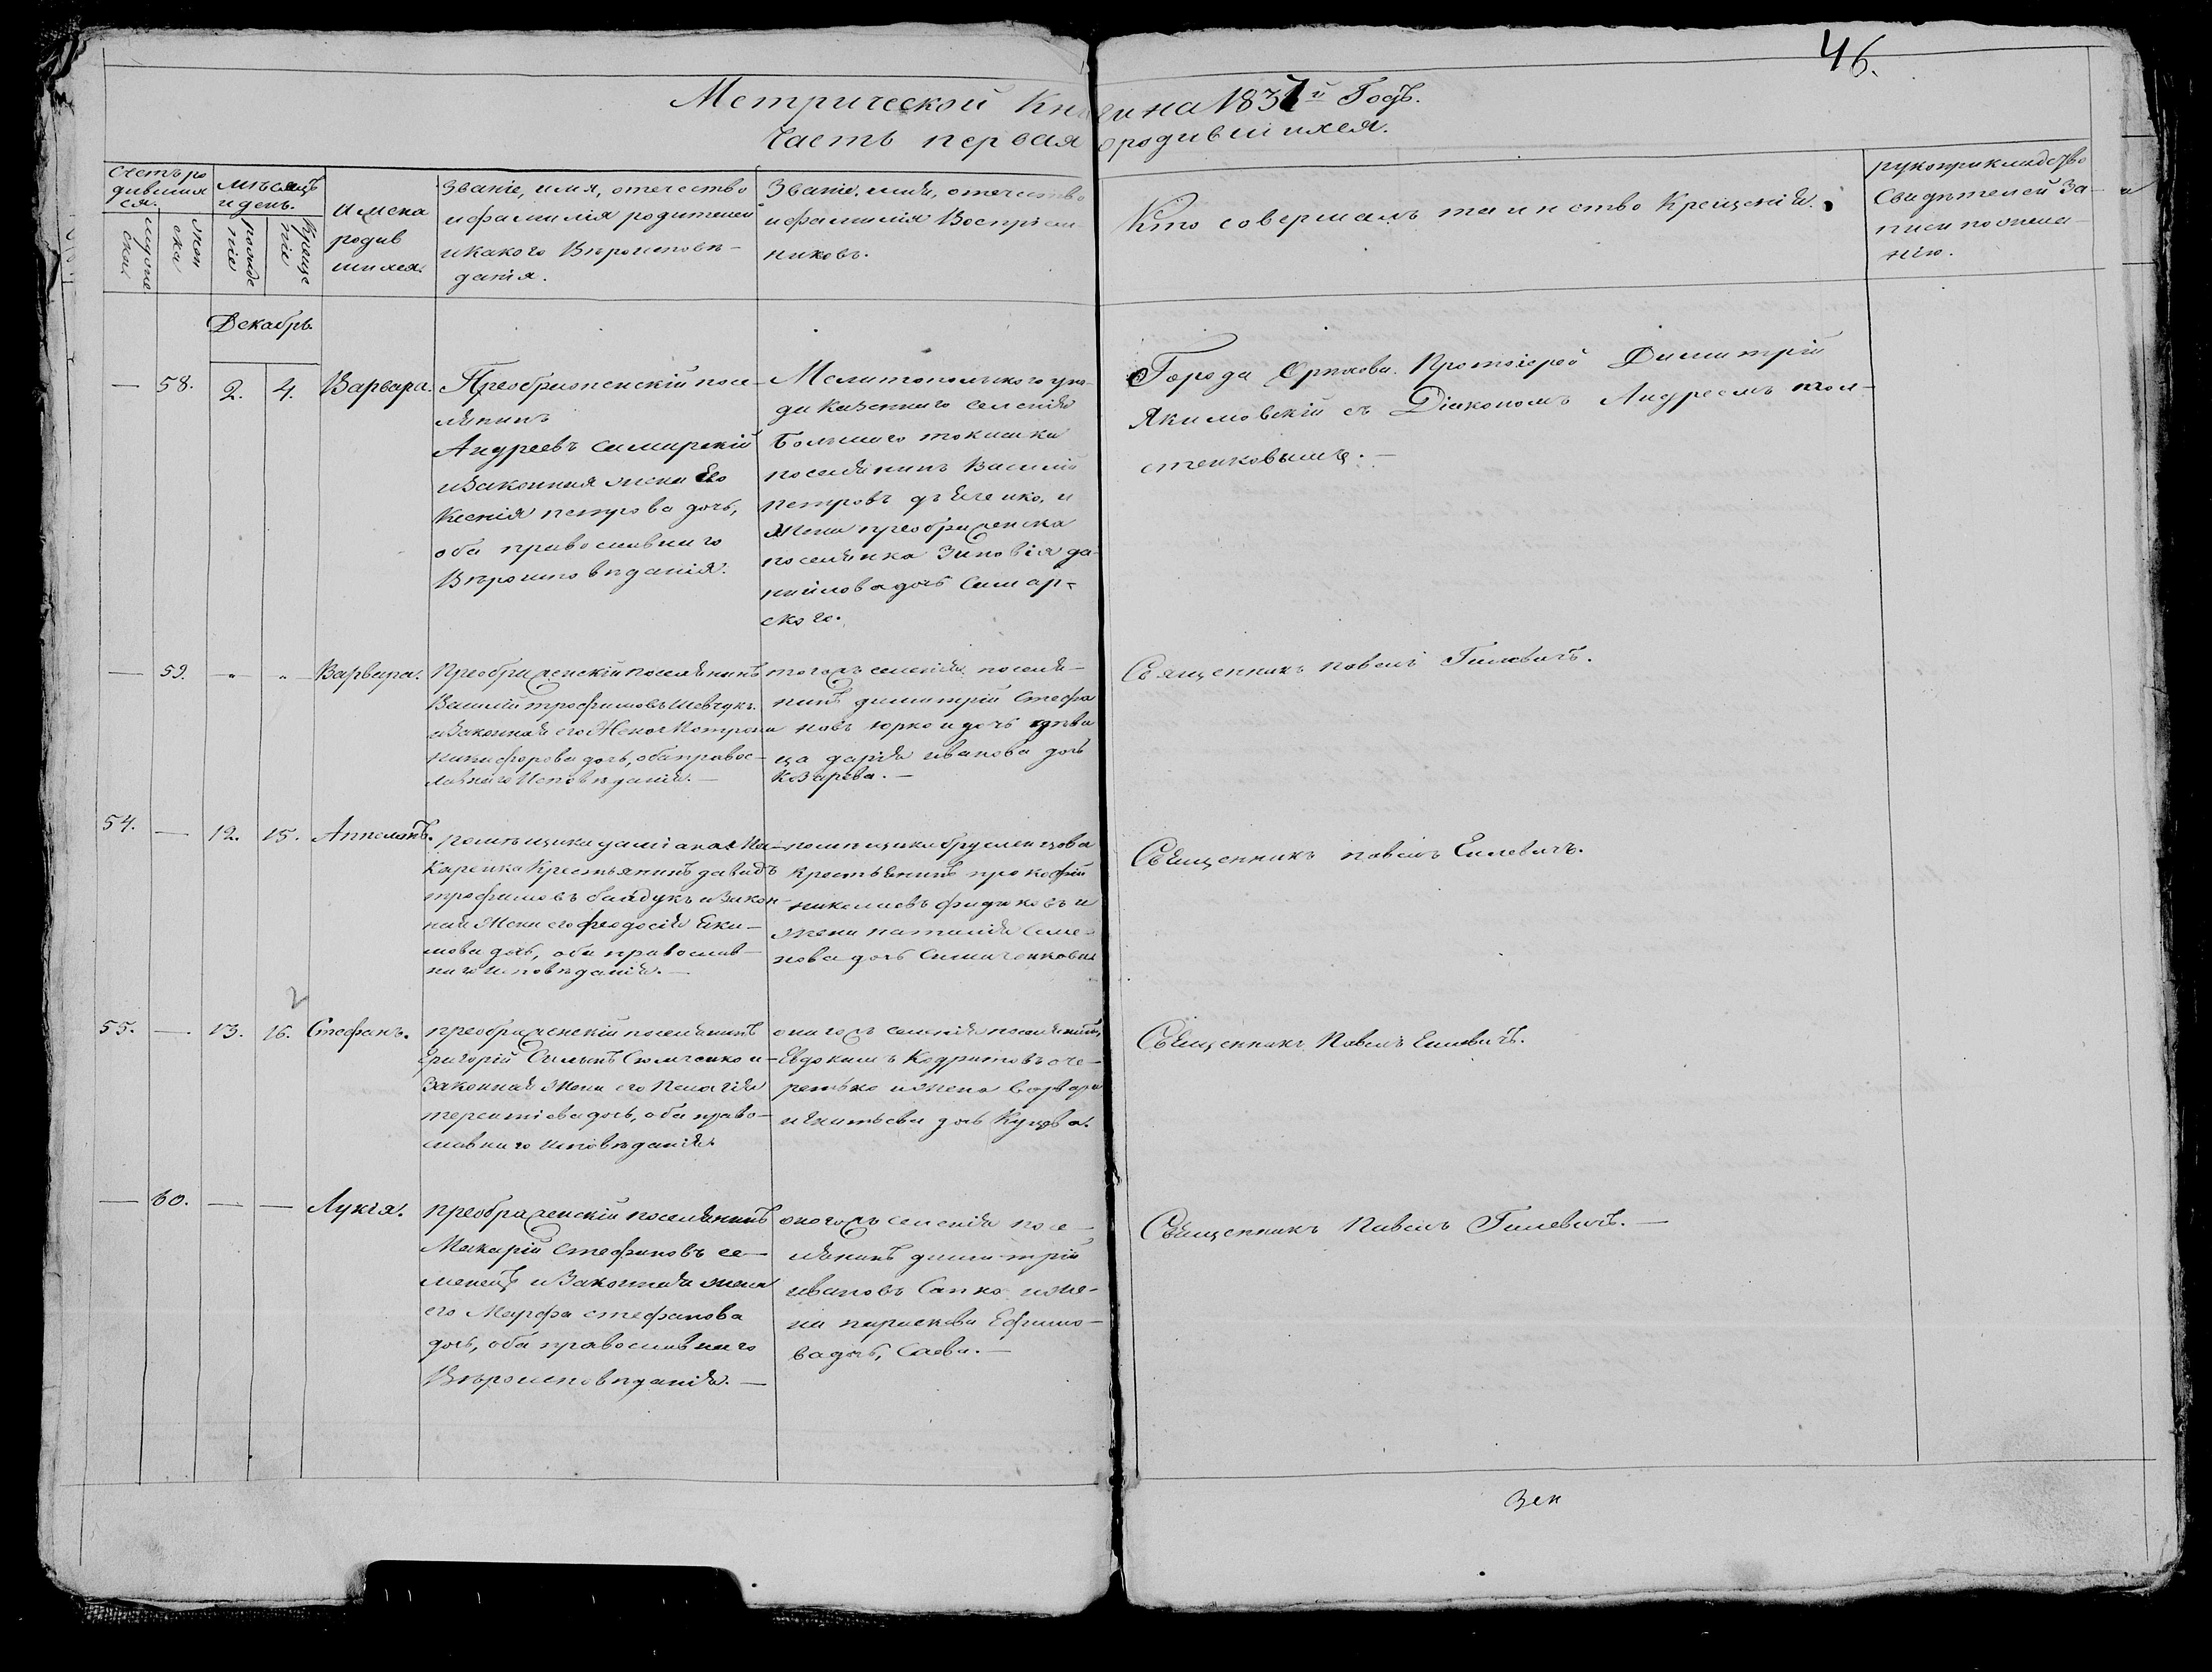 46.
Метрической Книги на 1837й Годъ.
Часть первая о родившихся.
Счетъ родившихся.
мужеска
женска
мѣсяцъ и день.
рожденіе
Крещеніе
Имена
родив
шихся.
Званіе, имя, отечество
и фамилія родителей
и какого Вѣроисповѣ-
данія.
Званіе, имя, отечество
и фамилія Воспріем-
никовъ.
Кто совершалъ таинство Крещенія.
рукоприкладство
Свидѣтелей за-
писи по жела-
нію.
Декабрь.
— 58. 2. 4. Варвара.
Преображенскій посе-
лянинъ
Андреевъ самарскій
и Законная жена Его
Ксенія петрова дочь,
оба православнаго
Вѣроисповѣданія.
Мелитопольского уѣз-
да казенного селенія
Большого токмака
поселянинъ Василій
петровъ и
жена преображенска
поселянка Зиновія да-
нійлова дочь Самар-
ского.
Города Орѣхова Протоіерей Димитрій
Якимовскій съ Діакономъ Андреемъ тол-
стенковымъ. —
— 59. „ „ Варвара.
Преображенскій поселянинъ
Василій трофимовъ Шевчукъ
и Законная его Жена Матрона
никифорова дочь, оба правос-
лавнаго Исповѣданія. —
того жъ селенія поселя-
нинъ димитрій Стефа
новъ юрко и дочь дѣви
ца дарія иванова дочь
Козарева. —
Священникъ павелъ Гилевичъ.
54. — 12. 15.
помѣщика даміана Ма-
Каренка Крестьянинъ давидъ
трофимовъ байдукъ и закон-
ная Жена его феодосія Еки-
мова дочь, оба православ-
наго исповѣданія. —
помѣщика
Крестьянинъ прокофій
николаевъ и
жена наталія Семе-
нова дочь
Священникъ павелъ Гилевичъ.
55. — 13. 16. Стефанъ.
преображенскій поселянинъ
Григорій и
Законная Жена его Пелагія
терентіева дочь, оба право-
славнаго исповѣданія
оного жъ селенія поселянинъ
Евдокимъ Кодратовъ оче-
ретько и жена варвара
дочь
Священникъ Павелъ Гилевичъ.
— 60. — — Лукія.
преображенскій поселянинъ
Макарій Стефановъ се-
менецъ и Законная жена
его Марфа стефанова
дочь, оба православнаго
Вѣроисповѣданія. —
оного жъ селенія посе-
лянинъ димитрій
ивановъ Сапко и же-
на параскева Ефимо-
ва дочь, Саева. —
Священникъ Павелъ Гилевичъ. —